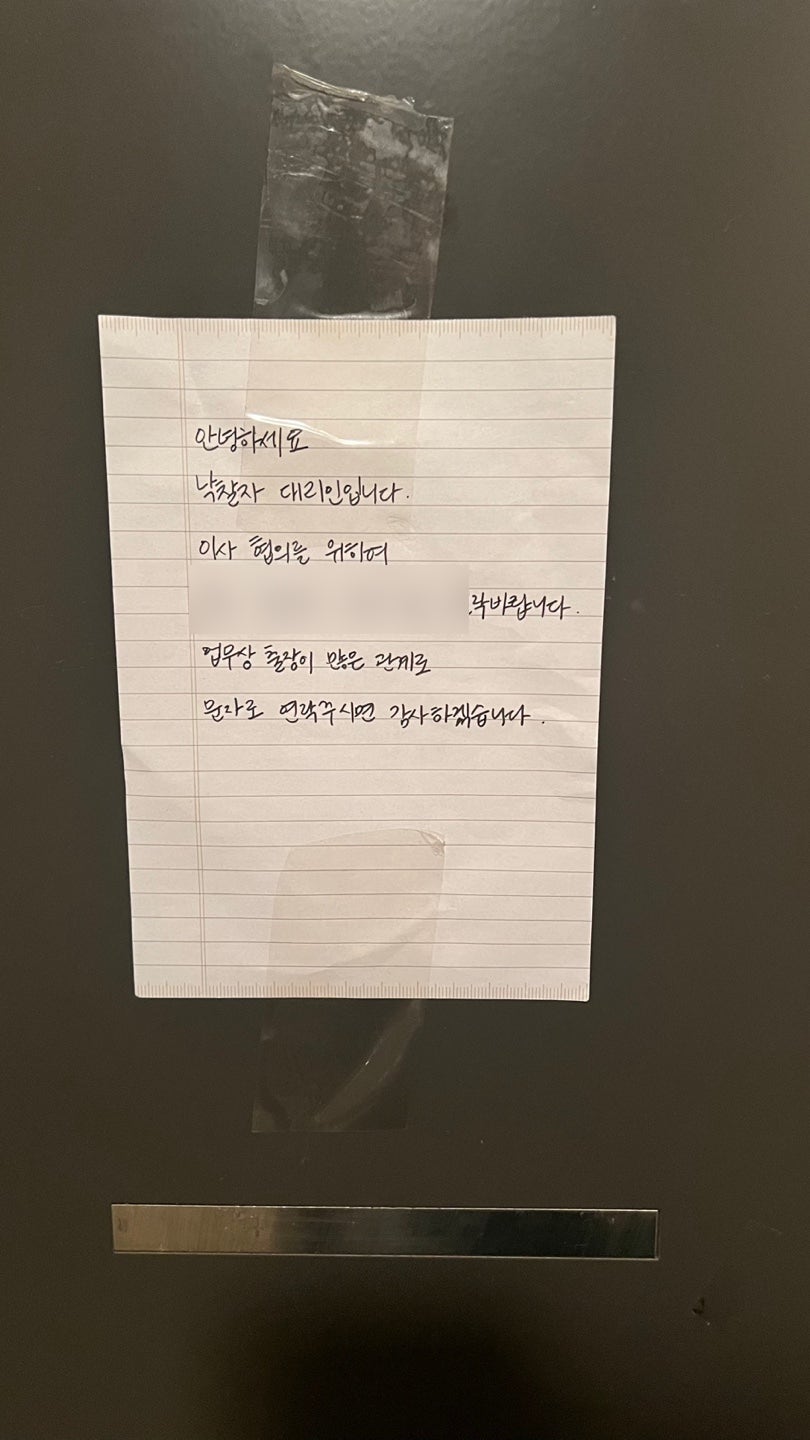 안녕하세요
낙찰자 대리인입니다.
이사 협의를 위하여
락바랍니다.
업무상 출장이 많은 관계로
문자로 연락주시면 감사하겠습니다.